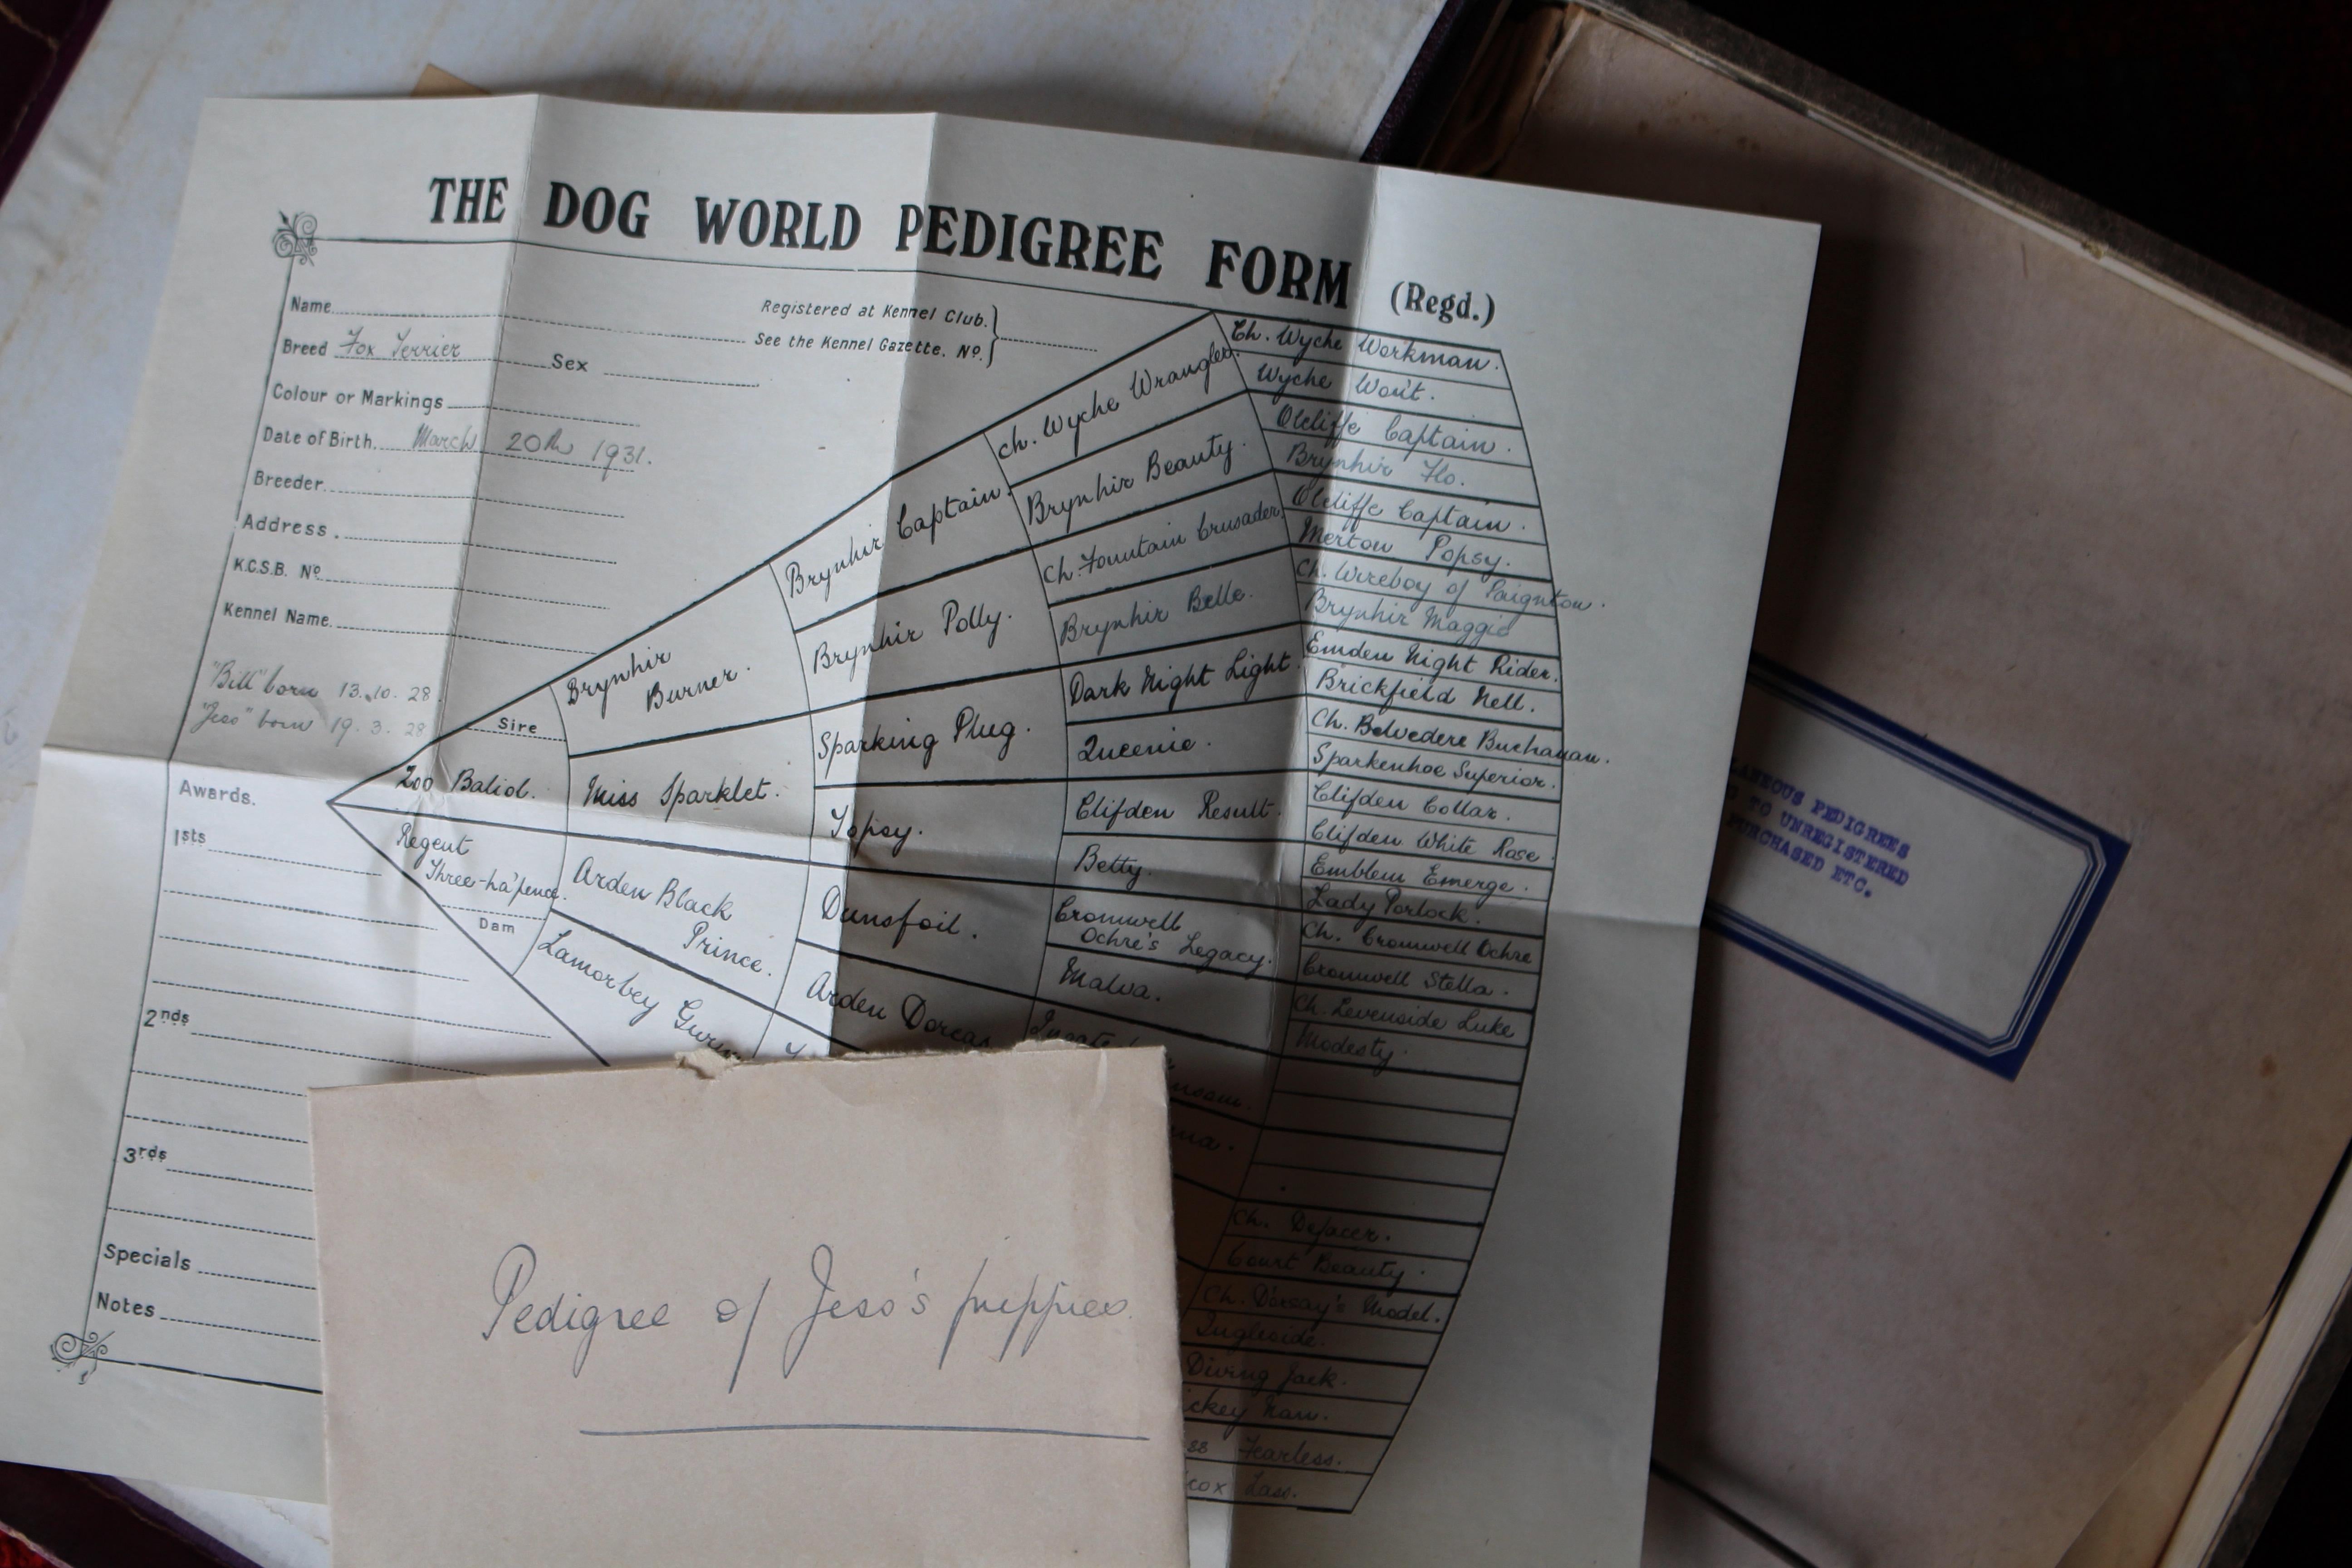 THE DOG WORLD PEDIGREE FORM (Regd.)
Name
Registered at Kennel Club.
See the Kennel Gazette. No.
Breed Fox Terrier
Sex
Colour or Markings
Date of Birth. March 20th 1931.
Breeder
Address
K.C.S.B. No
Kennel Name
"Bill" born 13.10.28.
"Jess" born 19.3.28
Awards.
1sts
2nds
3rds
Specials
Notes
Zoo Baliol.
Sire
Regent
Three-ha'pence.
Dam
Brynhir
Burner.
Miss Sparklet.
Arden Black
Prince.
Lamorbey
Brynhir Captain.
Brynhir Polly.
Sparking Plug.
Topsy.
Dunsfoil.
Arden Dorcas
Ch. Wyche Wrangler.
Brynhir Beauty.
Ch. Fountain Crusader
Brynhir Belle.
Dark Night Light.
Queenie.
Clifden Result.
Betty.
Cromwell
Ochre's Legacy.
Malva.
Ch. Wyche Workman.
Wyche Won't.
Olcliffe Captain.
Brynhir Flo.
Olcliffe Captain.
Merton Popsy.
Ch. Wireboy of Paignton.
Brynhir Maggie
Emden Night Rider.
Brickfield Nell.
Ch. Belvedere Buchanan.
Sparkenhoe Superior.
Clifden Collar.
Clifden White Rose.
Emblem Emerge.
Lady Porlock.
Ch. Cromwell Ochre
Cromwell Stella.
Ch. Levenside Luke
Modesty.
Ch. Defacer.
Court Beauty.
Ch. Dorsay's Model.
Ingleside.
Diving Jack.
Fearless.
Lass.
Pedigree of Jess's puppies.
PEDIGREES
TO UNREGISTERED
PURCHASED ETC.